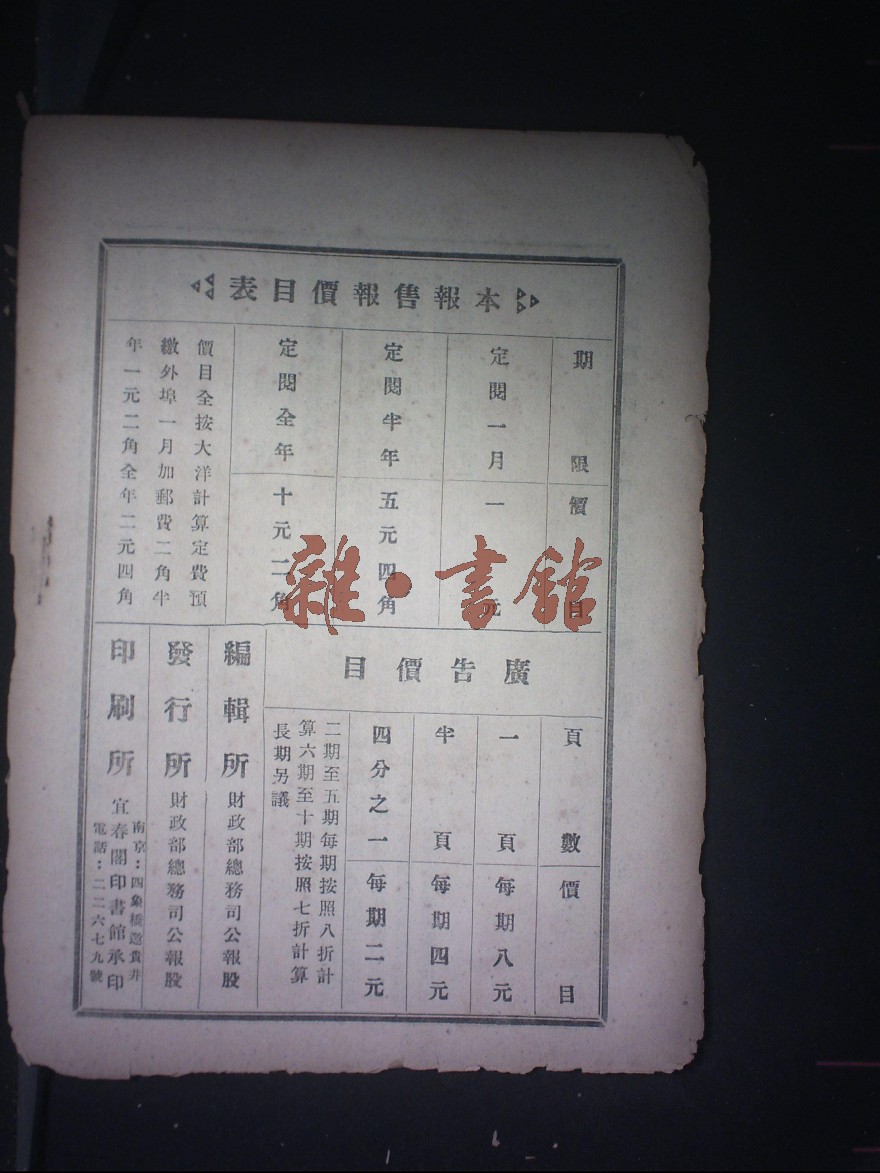 本報售報價目表
期限 價目
定閱一月 一元
定閱半年 五元四角
定閱全年 十元二角
價目全按大洋計算定費預
繳外埠一月加郵費二角半
年一元二角全年二元四角
廣告價目
頁數 價目
一頁 每期八元
半頁 每期四元
四分之一 每期二元
二期至五期每期按照八折計
算六期至十期按照七折計算
長期另議
編輯所 財政部總務司公報股
發行所 財政部總務司公報股
印刷所 宜春閣印書館承印
南京：四象橋邀貴井
電話：二二六七九號
雜·書館